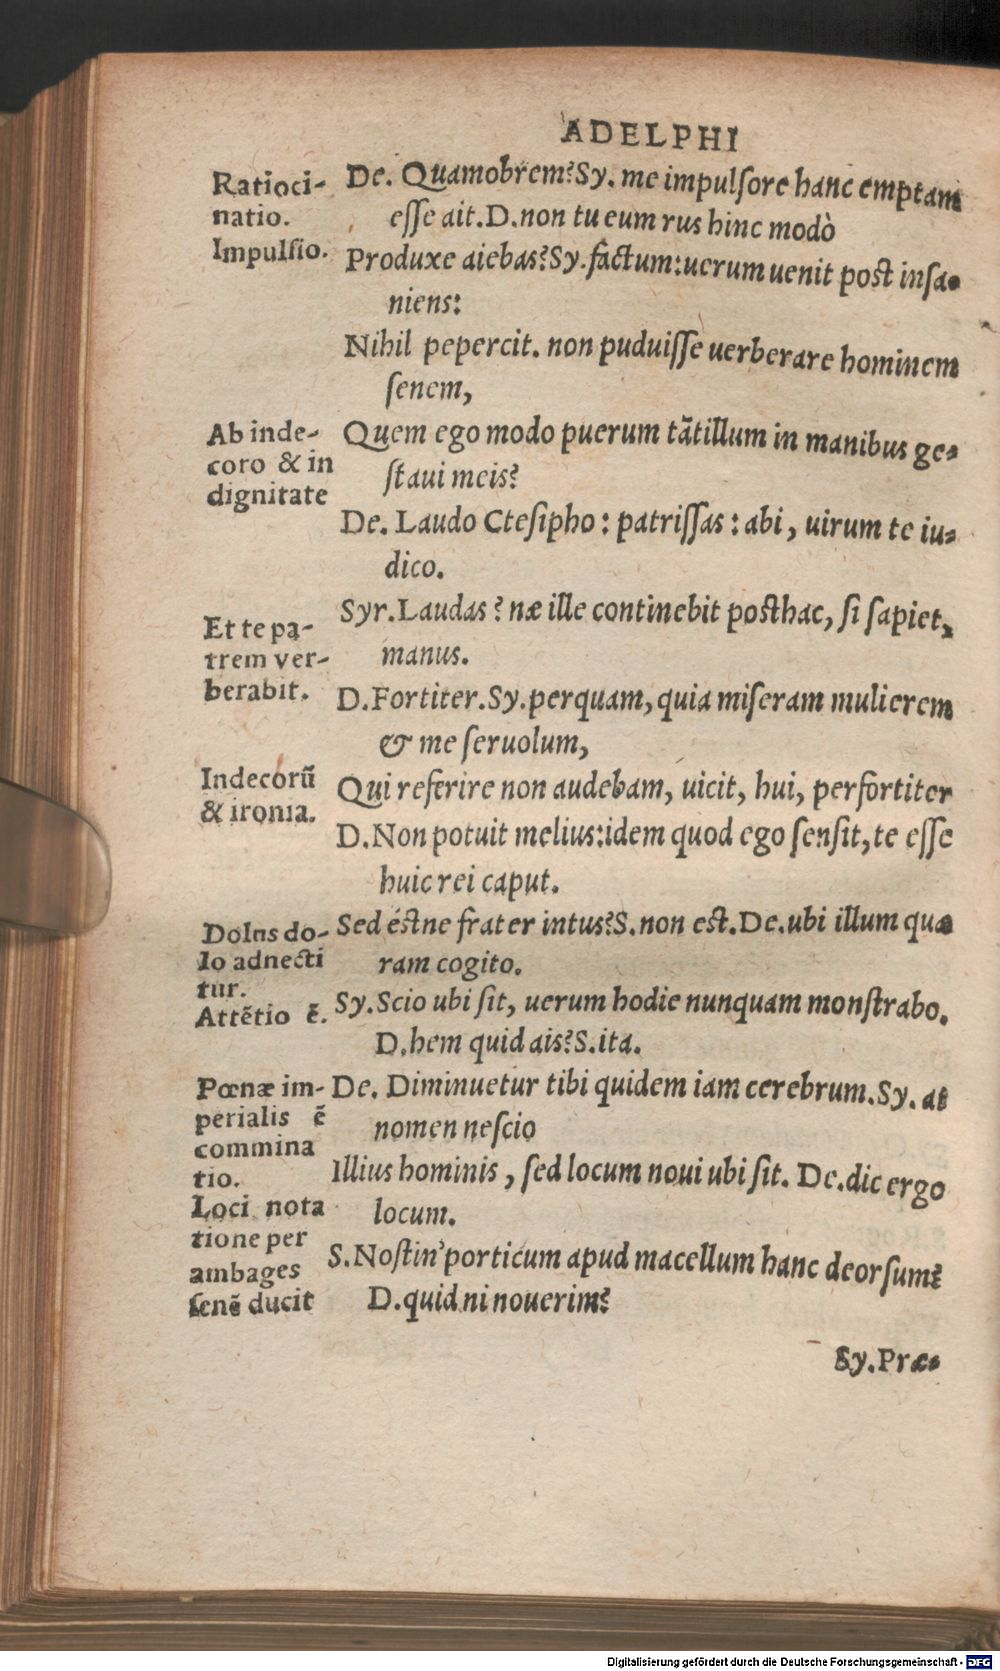 ADELPHI
Ratioci-
natio.
Impulsio.
De. Quamobrem? Sy. me impulſore hanc emptam
eſſe ait. D. non tu eum rus hinc modò
Produxe aiebas? Sy. factum: uerum uenit post inſa-
niens:
Nihil pepercit. non puduiſſe uerberare hominem
ſenem,
Ab inde-
coro & in
dignitate
Quem ego modo puerum tãtillum in manibus ge-
ſtaui meis?
De. Laudo Cteſipho: patriſſas: abi, uirum te iu-
dico.
Et te pa-
trem ver-
berabit.
Syr. Laudas? næ ille continebit posthac, ſi ſapiet,
manus.
D. Fortiter. Sy. perquam, quia miſeram mulierem
& me ſeruolum,
Indecorũ
& ironia.
Qui referire non audebam, uicit, hui, perfortiter
D. Non potuit melius: idem quod ego ſenſit, te eſſe
huic rei caput.
Dolus do-
lo adnecti
tur.
Attẽtio ẽ.
Sed éstne frater intus? S. non est. De. ubi illum quæ
ram cogito.
Sy. Scio ubi ſit, uerum hodie nunquam monſtrabo.
D. hem quid ais? S. ita.
Pœnæ im-
perialis ẽ
commina
tio.
Loci nota
tione per
ambages
ſenẽ ducit
De. Diminuetur tibi quidem iam cerebrum. Sy. at
nomen neſcio
Illius hominis, ſed locum noui ubi ſit. De. dic ergo
locum.
S. Noſtin' porticum apud macellum hanc deorſum?
D. quid ni nouerim?
Sy. Præ-
Digitalisierung gefördert durch die Deutsche Forschungsgemeinschaft - DFG